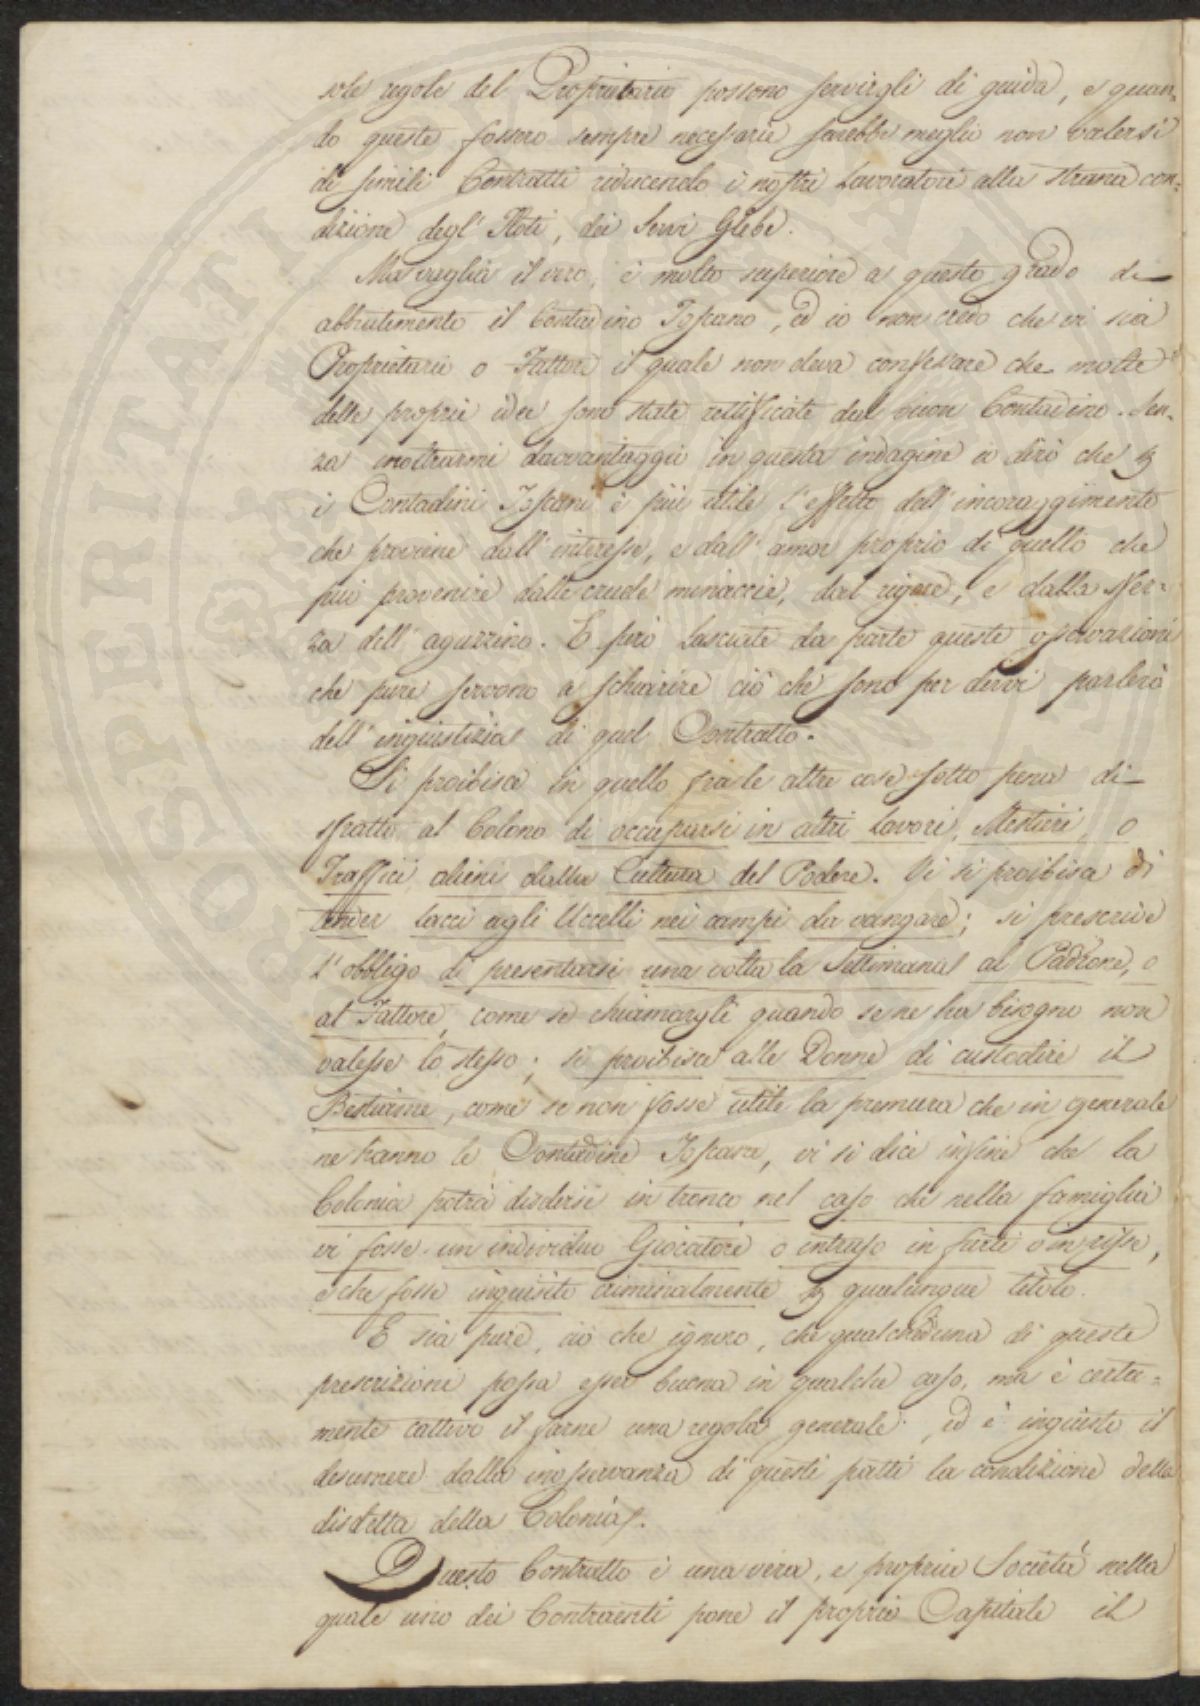 sole regole del Proprietario possono servirgli di guida, e quan-
do queste fossero sempre necessarie sarebbe meglio non valersi
di simili Contratti riducendo i nostri Lavoratori alla strana con-
dizione degl' Iloti, dei Servi Glebe.
Ma vaglia il vero, è molto superiore a questo grado di
abbrutimento il Contadino Toscano, ed io non credo che vi sia
Proprietario o Fattore il quale non deva confessare che molte
delle proprie idee sono state rettificate dal buon Contadino. Sen-
za inoltrarmi davvantaggio in questa indagine io dirò che p
i Contadini Toscani è più utile l'effetto dell'incoraggimento
che proviene dall'interesse, e dall'amor proprio di quello che
può provenire dalle crude minaccie, dal rigore, e dalla sfer-
za dell'aguzzino. E però lasciate da parte queste osservazioni
che pure servono a schiarire ciò che sono per dirvi parlerò
dell'ingiustizia di quel Contratto.
Si proibisce in quello fra le altre cose sotto pena di
sfratto al Colono di occuparsi in altri Lavori, Mestieri, o
Traffici alieni dalla Cultura del Podere. Vi si proibisce di
tender lacci agli Uccelli nei campi da vangare; si prescrive
l'obbligo di presentarsi una volta la Settimana al Padrone, o
al Fattore, come se chiamargli quando se ne ha bisogno non
valesse lo stesso; si proibisce alle Donne di custodire il
Bestiame, come se non fosse utile la premura che in generale
ne hanno le Contadine Toscane, vi si dice infine che la
Colonia potrà disdirsi in tronco nel caso che nella famiglia
vi fosse un individuo Giocatore o intruso in furti o in risse,
o che fosse inquisito criminalmente p qualunque titolo.
E sia pure, ciò che ignoro, che qualcheduna di queste
prescrizioni possa esser buona in qualche caso, ma è certa-
mente cattivo il farne una regola generale, ed è ingiusto il
desumere dalla inosservanza di questi patti la condizione della
disdetta della Colonia.
Questo Contratto è una vera, e propria Società nella
quale uno dei Contraenti pone il proprio Capitale il